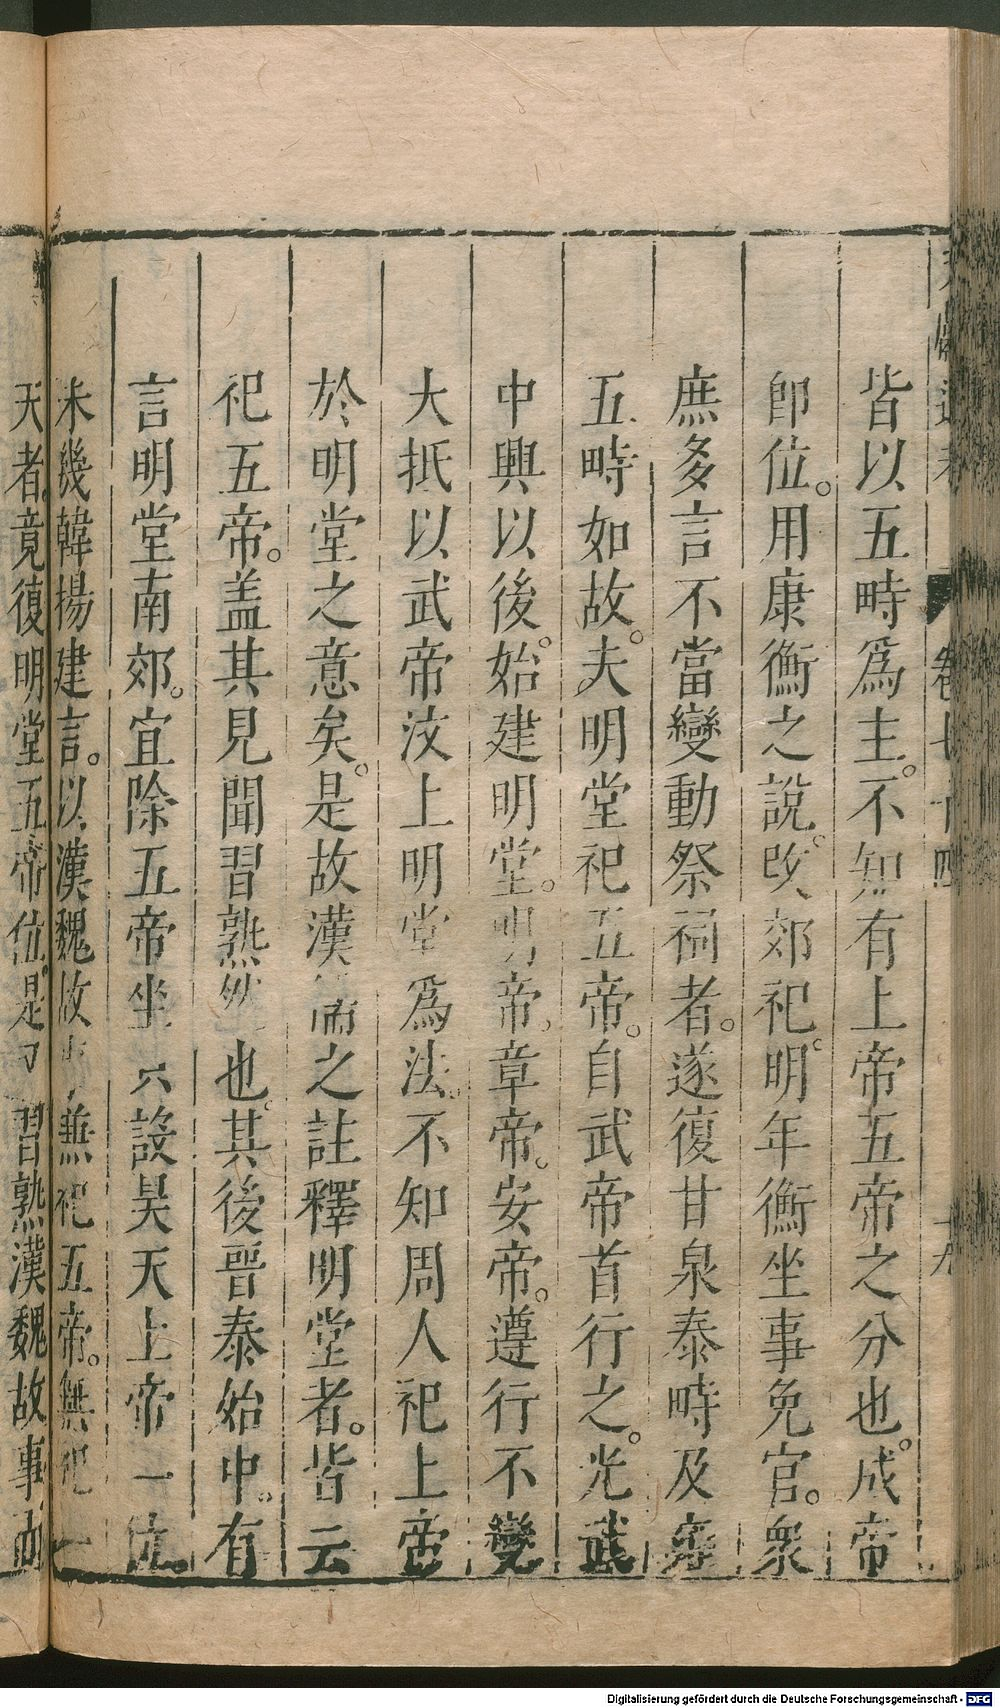 皆以五畤爲主。不知有上帝五帝之分也。成帝
卽位。用康衡之說。改郊祀。明年衡坐事免官。衆
庶多言不當變動祭祠者。遂復甘泉泰畤及雍
五畤如故。夫明堂祀五帝。自武帝首行之。光武
中興以後。始建明堂。明帝。章帝。安帝。遵行不變
大抵以武帝汶上明堂爲法。不知周人祀上帝
於明堂之意矣。是故漢儒之註釋明堂者。皆云
祀五帝。盖其見聞習熟然也。其後晉泰始中。有
言明堂南郊。宜除五帝坐只設昊天上帝一位。
未幾韓揚建言。以漢魏故事兼祀五帝。無祀一
天者。竟復明堂五帝位。是 習熟漢魏故事而
卷七十四
十九
Digitalisierung gefördert durch die Deutsche Forschungsgemeinschaft - DFG